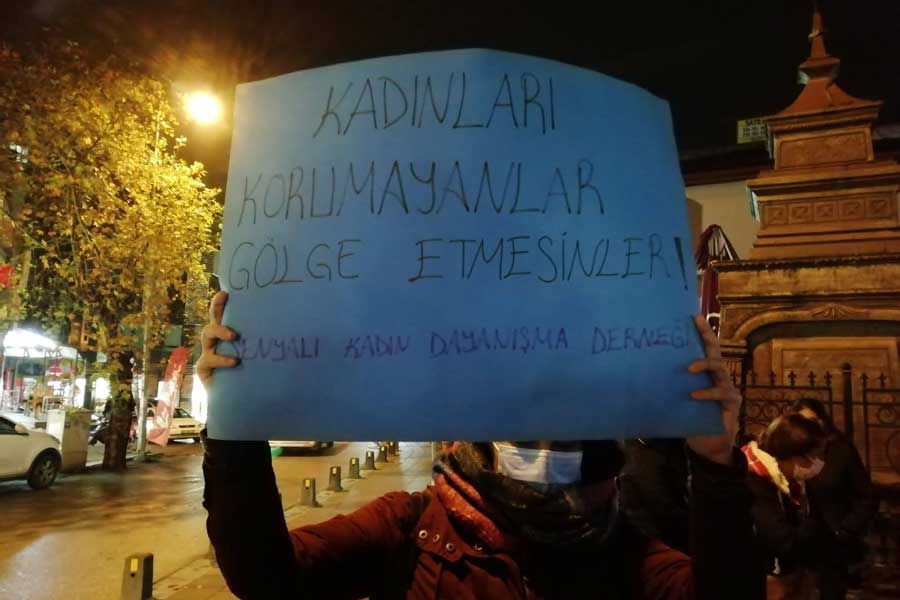 KADINLARI
KORUMAYANLAR
GÖLGE ETMESİNLER!
YENYALI KADIN DAYANIŞMA DERNEĞİ